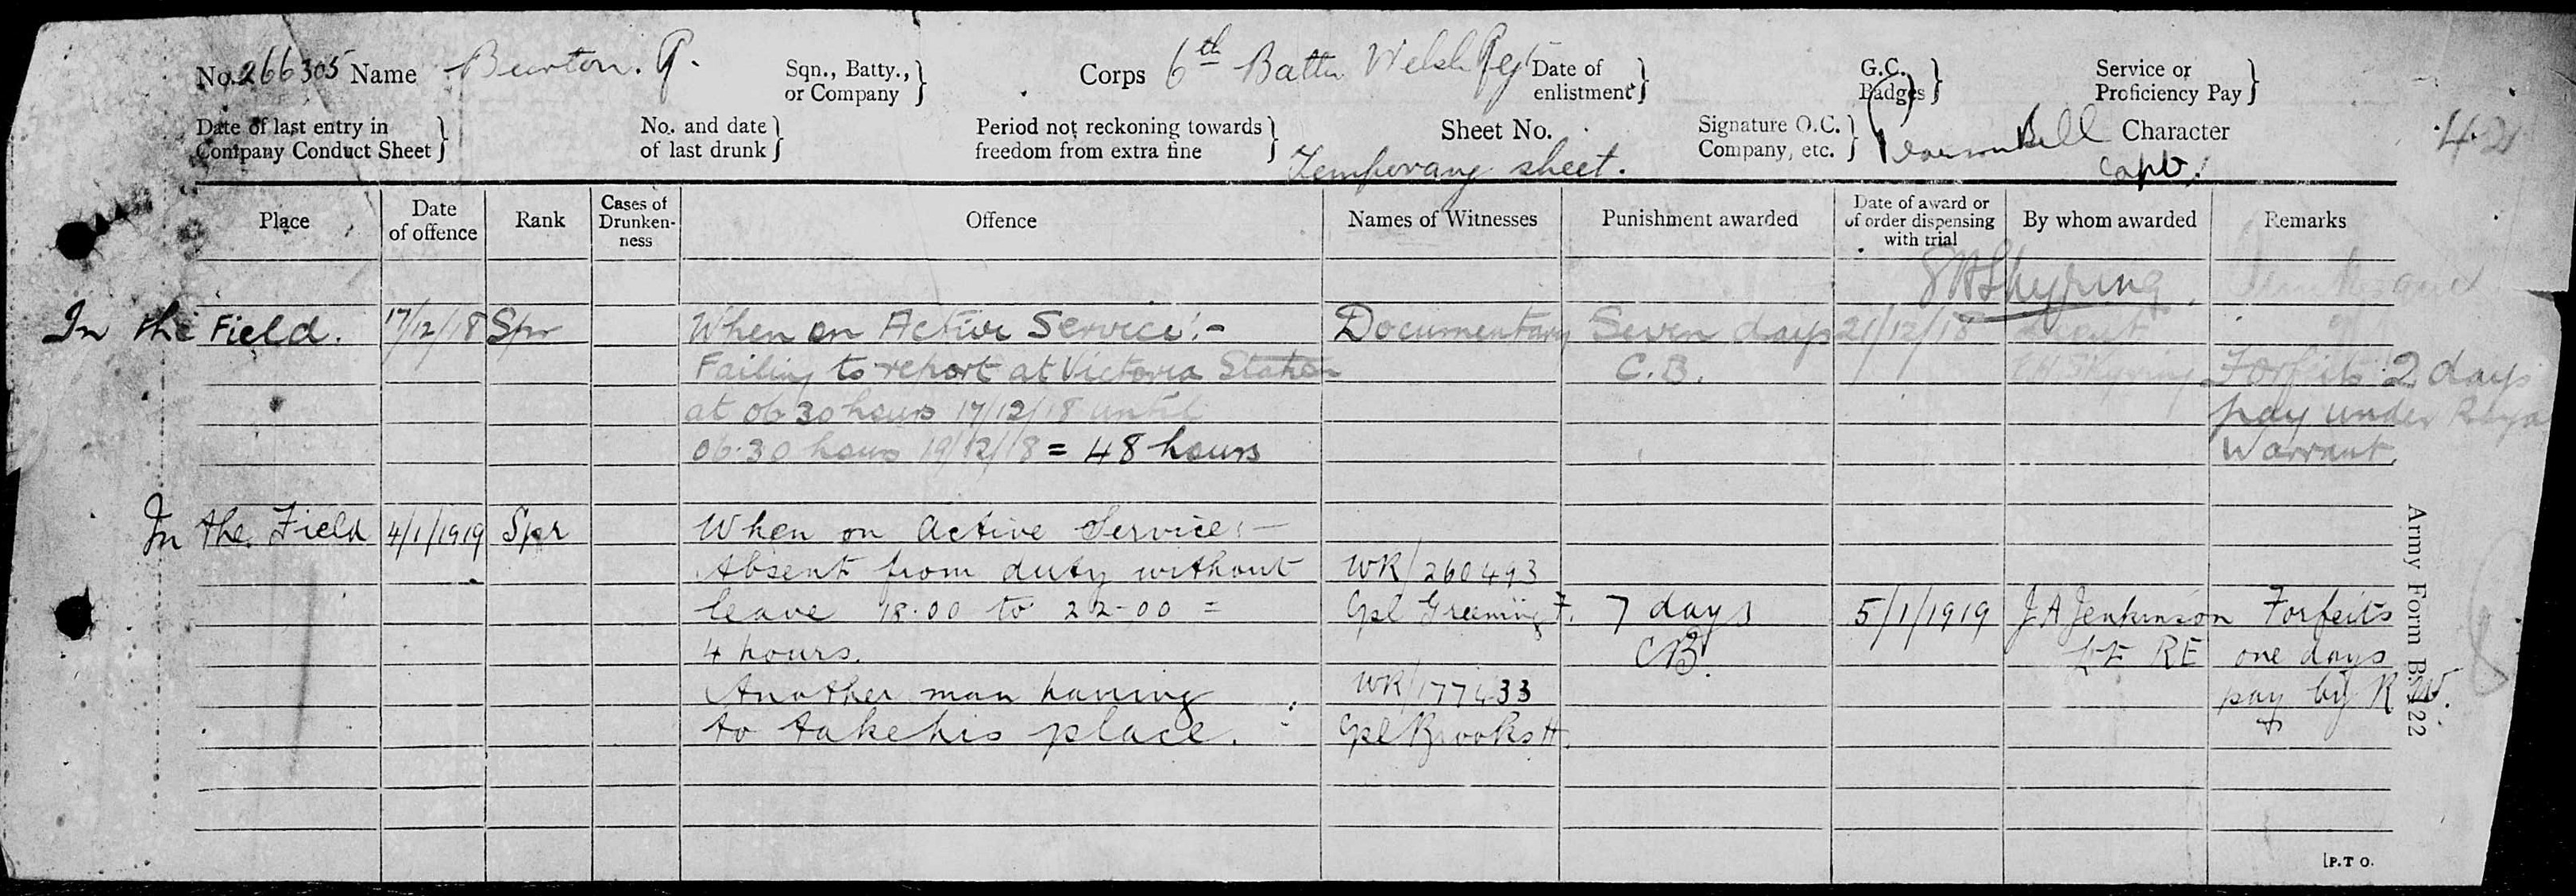 No. 266305 Name Burton. G. Sqn., Batty., or Company } Corps 6th Battn Welsh Regt Date of enlistment } G.C. Badges } Service or Proficiency Pay }
Date of last entry in Company Conduct Sheet } No. and date of last drunk } Period not reckoning towards freedom from extra fine } Sheet No. Signature O.C. Company, etc. } Bell Character
Temporary sheet. Capt.
42
Place Date of offence Rank Cases of Drunkenness Offence Names of Witnesses Punishment awarded Date of award or of order dispensing with trial By whom awarded Remarks
In the Field. 17/12/18 Spr When on Active Service:- Documentary Seven days 21/12/18 Lieut
Failing to report at Victoria Station C.B. Skyring Forfeits 2 days
at 06.30 hours 17/12/18 until pay under Royal
06.30 hours 19/12/18 = 48 hours Warrant.
In the Field 4/1/1919 Spr When on Active Service:-
Absent from duty without WR/260493
leave 18.00 to 22-00 = Cpl Greening F. 7 days 5/1/1919 J A Jenkinson Forfeits
4 hours. CB. Lt RE one days
Another man having WR/177433 pay by R.W.
to take his place. Cpl Brooks H.
Army Form B. 122
[P.T.O.